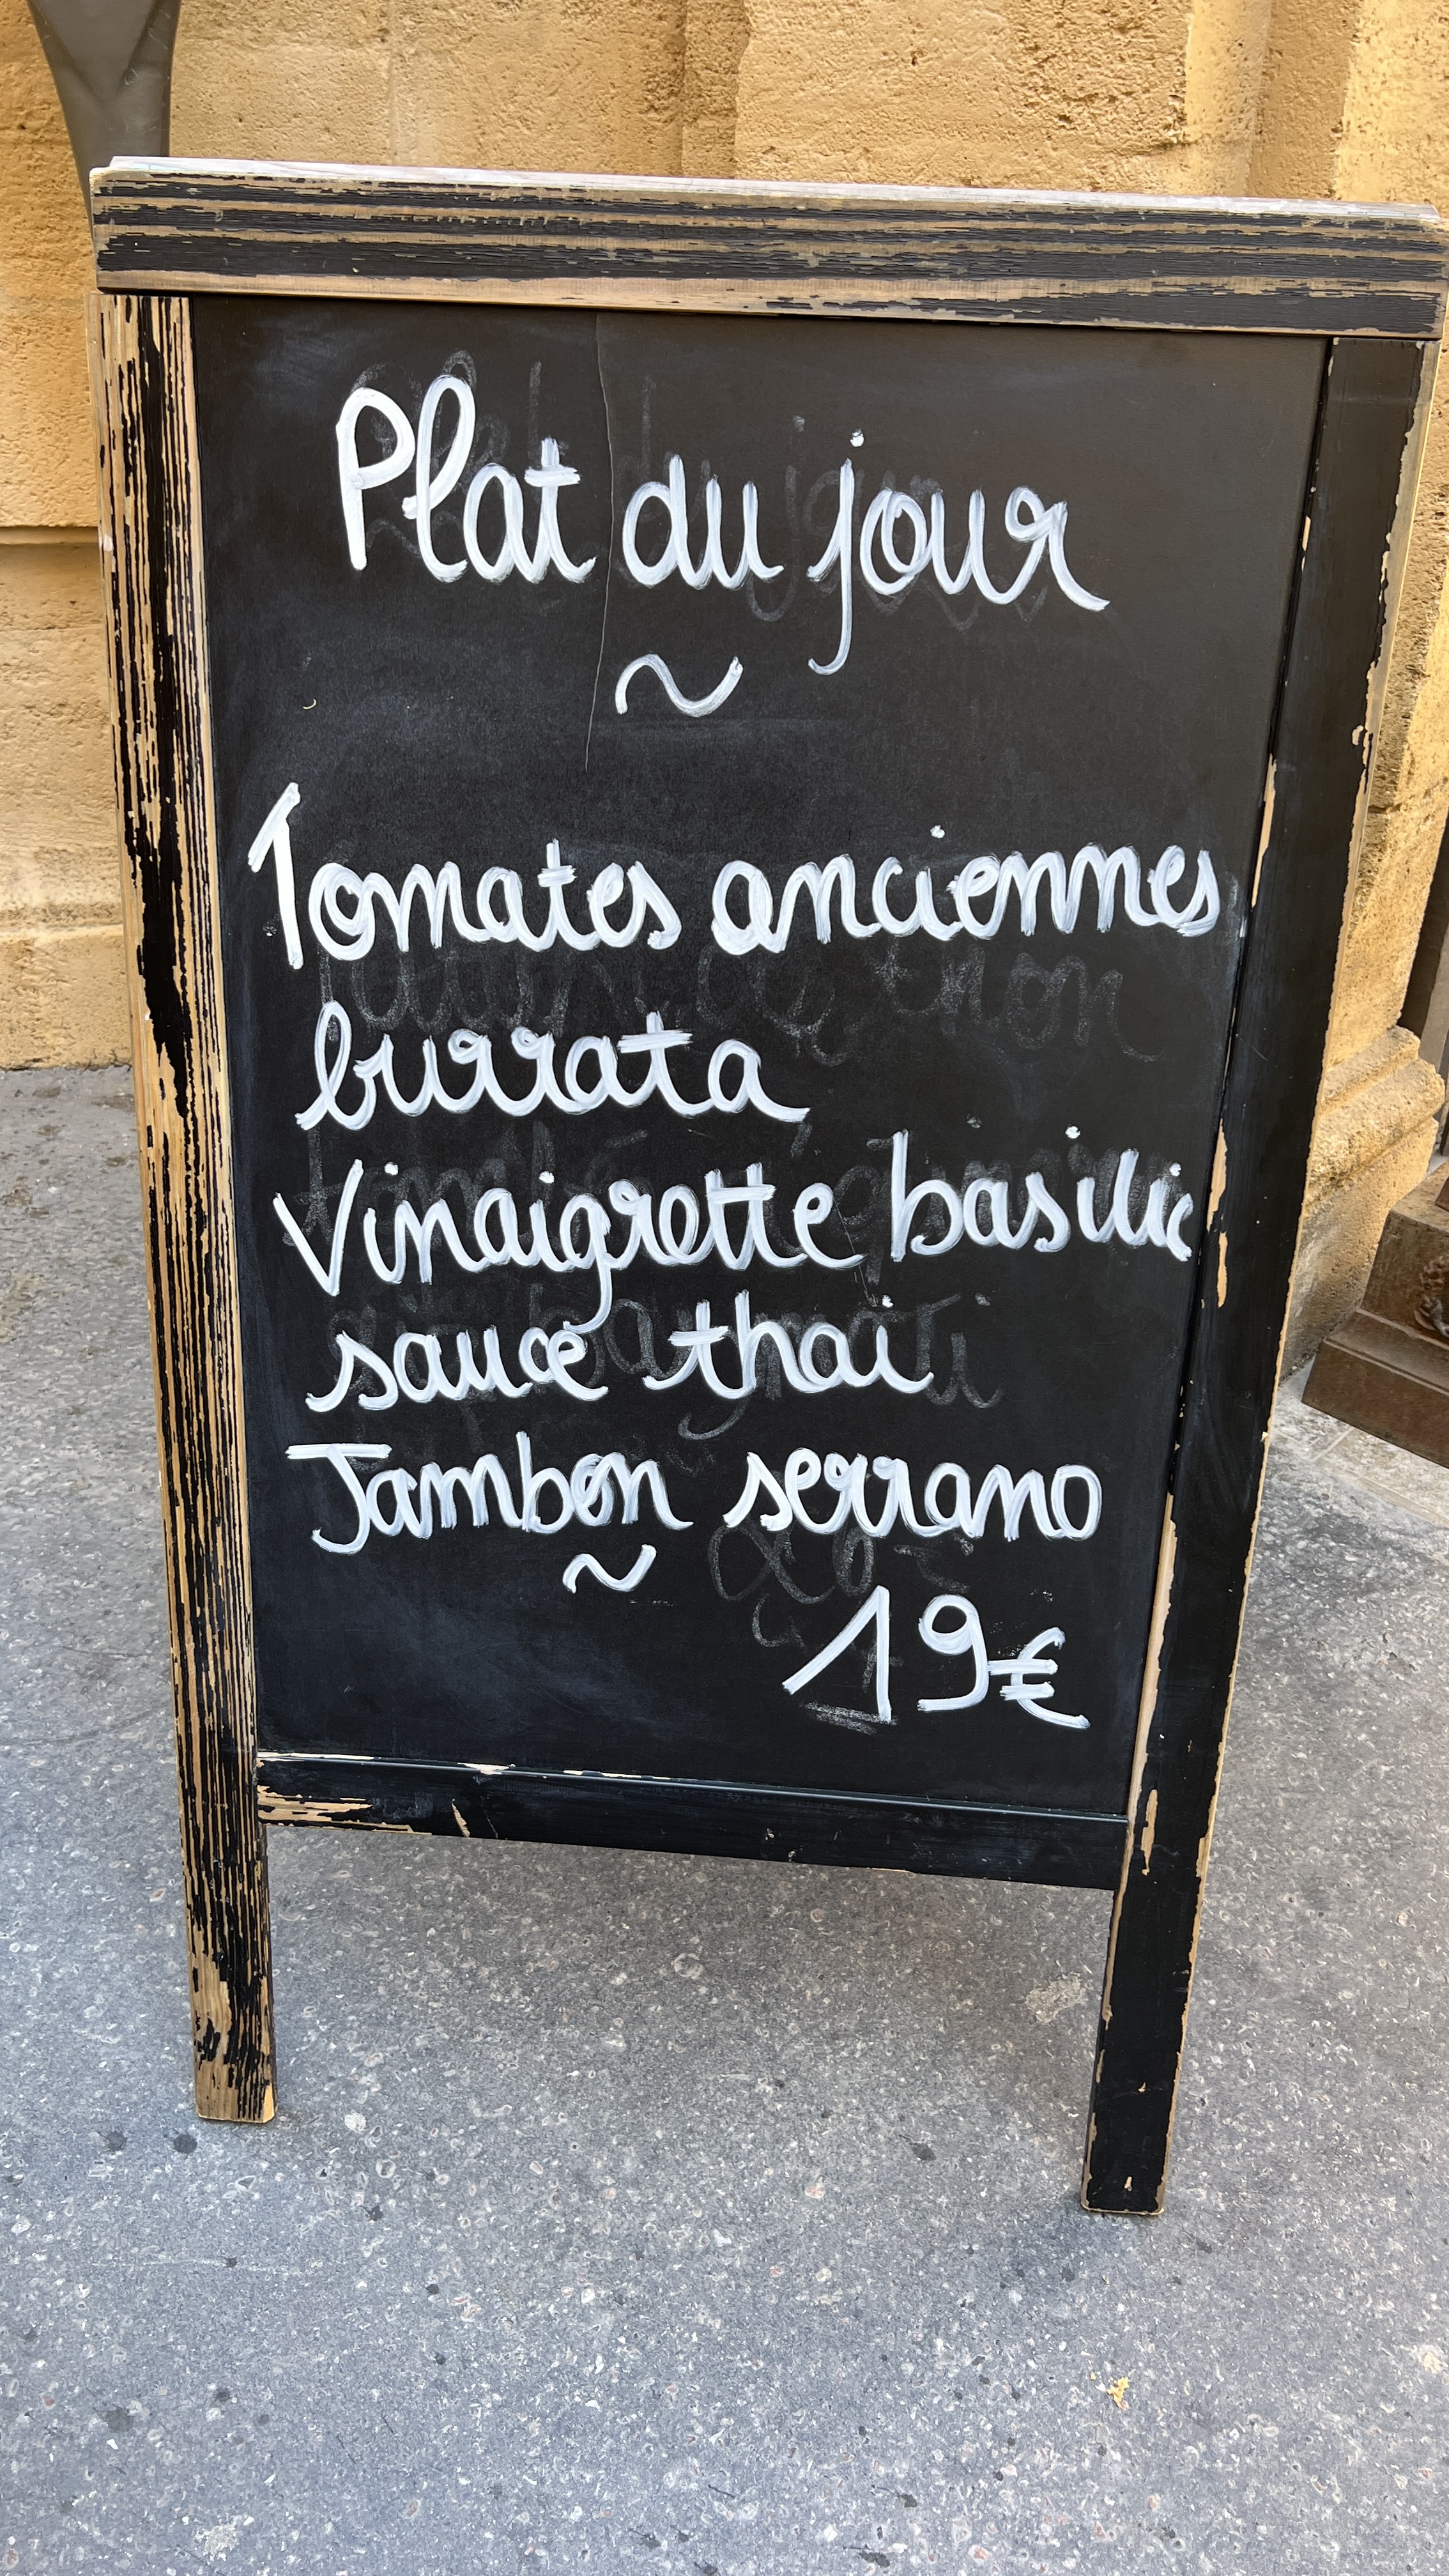 Plat du jour
~
Tomates anciennes
burrata
Vinaigrette basilic
sauce thai
Jambon serrano
~
19€